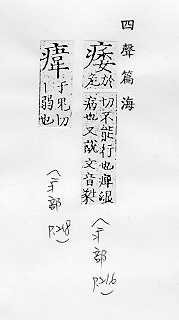 四聲篇海
痿
於危切不能行也痺溼
病也又說文音
〈疒部
P.216〉
𤸆
于鬼切
丨弱也
〈疒部
P.218〉